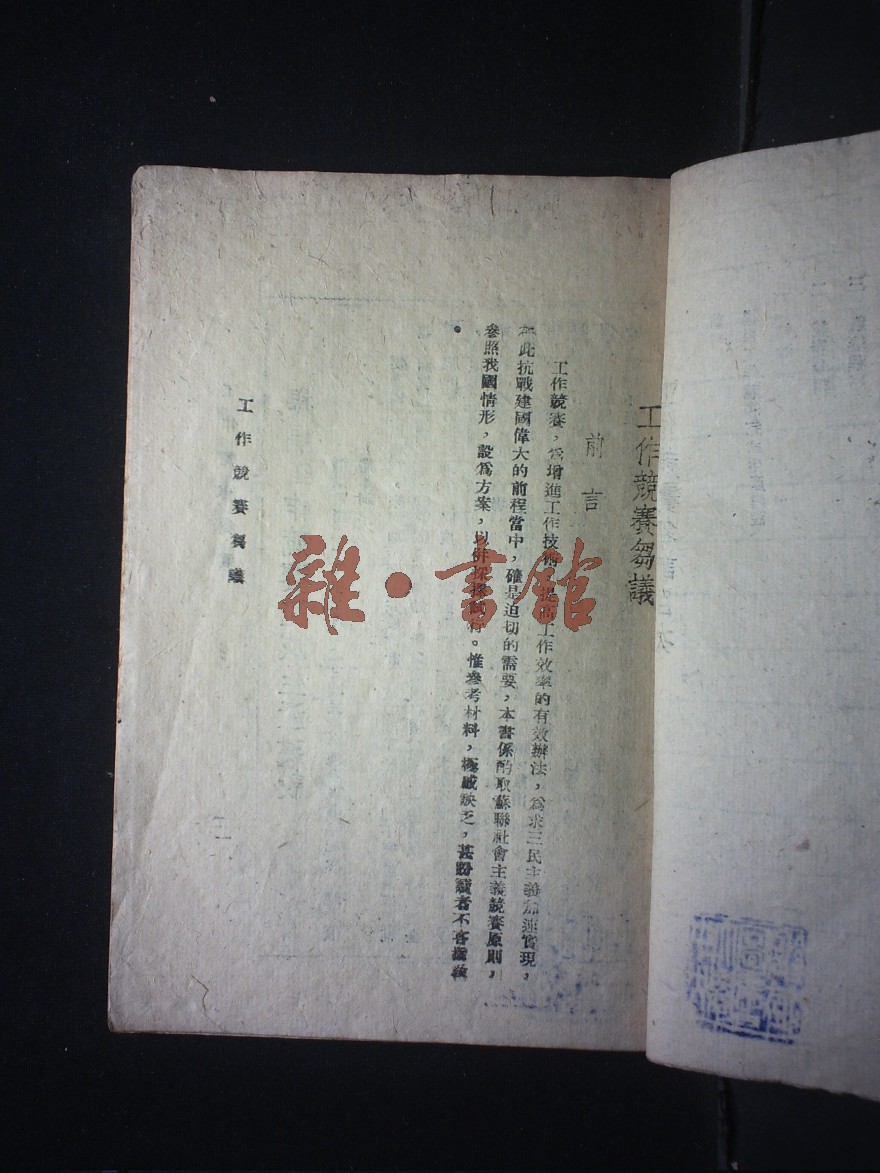 工作競賽芻議
前言
工作競賽，爲增進工作技術，提高工作效率的有效辦法，爲求三民主義加速實現，
在此抗戰建國偉大的前程當中，確是迫切的需要，本書係酌取蘇聯社會主義競賽原則，
參照我國情形，設爲方案，以供採擇試行。惟參考材料，極感缺乏，甚盼讀者不吝指教
。
工作競賽芻議
一
雜·書館